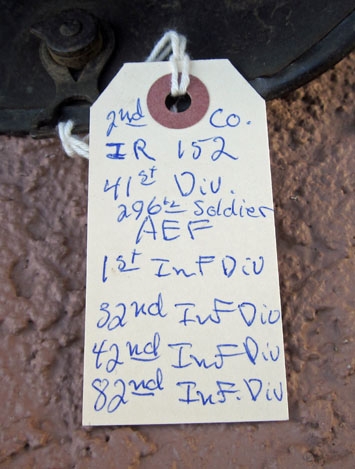 2nd Co.
IR 152
41st Div.
296th Soldier
AEF
1st Inf Div
32nd Inf Div
42nd Inf Div
82nd Inf. Div